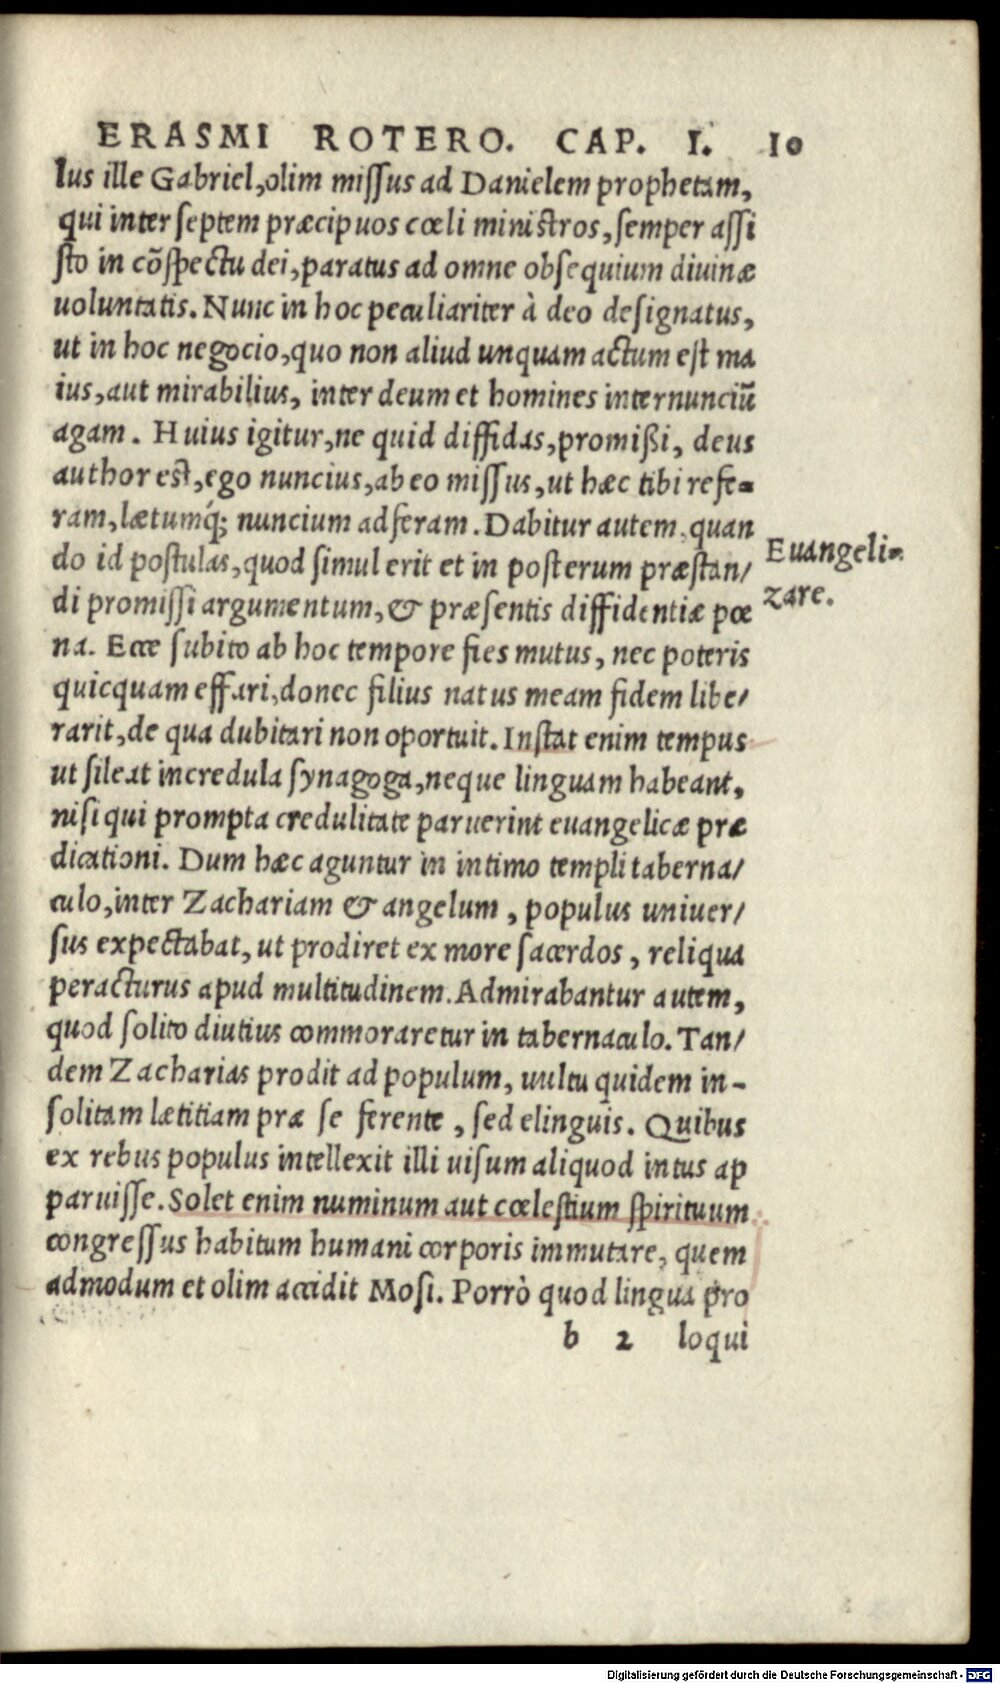 ERASMI ROTERO. CAP. I. 10
lus ille Gabriel, olim missus ad Danielem prophetam,
qui inter septem præcipuos cœli ministros, semper assi
sto in cōspectu dei, paratus ad omne obsequium diuinæ
uoluntatis. Nunc in hoc peculiariter à deo designatus,
ut in hoc negocio, quo non aliud unquam actum est ma
ius, aut mirabilius, inter deum et homines internunciū
agam. Huius igitur, ne quid diffidas, promißi, deus
author est, ego nuncius, ab eo missus, ut hæc tibi refe=
ram, lætumq́; nuncium adferam. Dabitur autem, quan
do id postulas, quod simul erit et in posterum præstan/
di promissi argumentum, & præsentis diffidentiæ pœ
na. Ecce subito ab hoc tempore fies mutus, nec poteris
quicquam effari, donec filius natus meam fidem libe/
rarit, de qua dubitari non oportuit. Instat enim tempus
ut sileat incredula synagoga, neque linguam habeant,
nisi qui prompta credulitate paruerint euangelicæ præ
dicationi. Dum hæc aguntur in intimo templi taberna/
culo, inter Zachariam & angelum, populus uniuer/
sus expectabat, ut prodiret ex more sacerdos, reliqua
peracturus apud multitudinem. Admirabantur autem,
quod solito diutius commoraretur in tabernaculo. Tan/
dem Zacharias prodit ad populum, uultu quidem in-
solitam lætitiam præ se ferente, sed elinguis. Quibus
ex rebus populus intellexit illi uisum aliquod intus ap
paruisse. Solet enim numinum aut cœlestium spirituum
congressus habitum humani corporis immutare, quem
admodum et olim accidit Mosi. Porrò quod lingua pro
b 2 loqui
Euangeli=
zare.
Digitalisierung gefördert durch die Deutsche Forschungsgemeinschaft - DFG